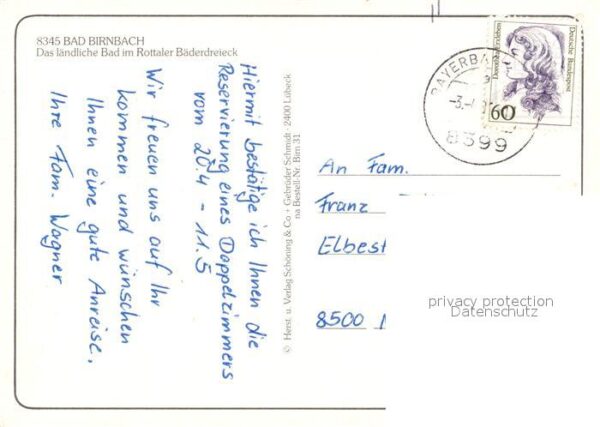 8345 BAD BIRNBACH
Das ländliche Bad im Rottaler Bäderdreieck
Hiermit bestätige ich Ihnen die
Reservierung eines Doppelzimmers
vom 20.4 - 11.5
Wir freuen uns auf Ihr
kommen und wünschen
Ihnen eine gute Anreise,
Ihre Fam. Wagner
© Herst. u. Verlag Schöning & Co + Gebrüder Schmidt · 2400 Lübeck
na Bestell-Nr. Birn 31
Deutsche Bundespost
60
BAYERBA
8399
An Fam.
Franz
Elbest
8500
privacy protection
Datenschutz